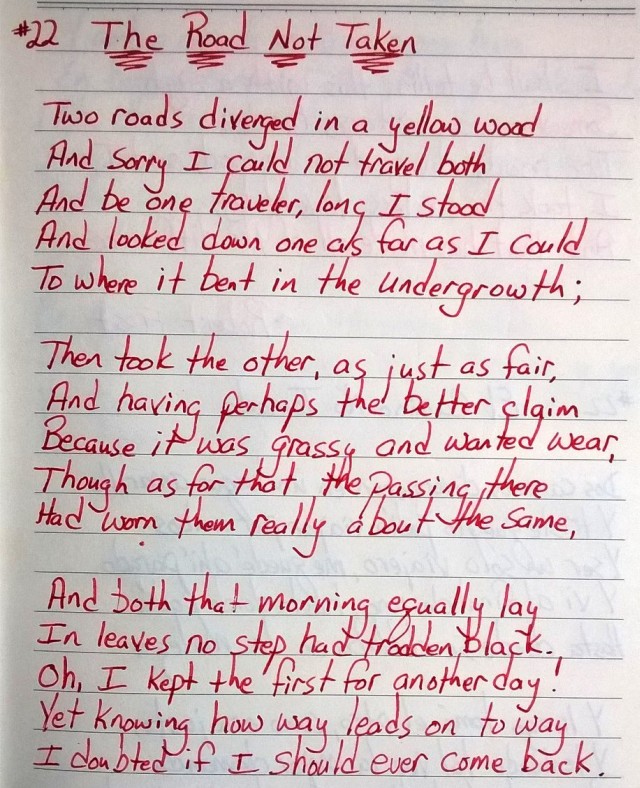 #22 The Road Not Taken
Two roads diverged in a yellow wood
And Sorry I could not travel both
And be one traveler, long I stood
And looked down one as far as I could
To where it bent in the undergrowth;
Then took the other, as just as fair,
And having perhaps the better claim
Because it was grassy and wanted wear,
Though as for that the passing there
Had worn them really about the same,
And both that morning equally lay
In leaves no step had trodden black.
Oh, I kept the first for another day!
Yet knowing how way leads on to way
I doubted if I should ever come back.